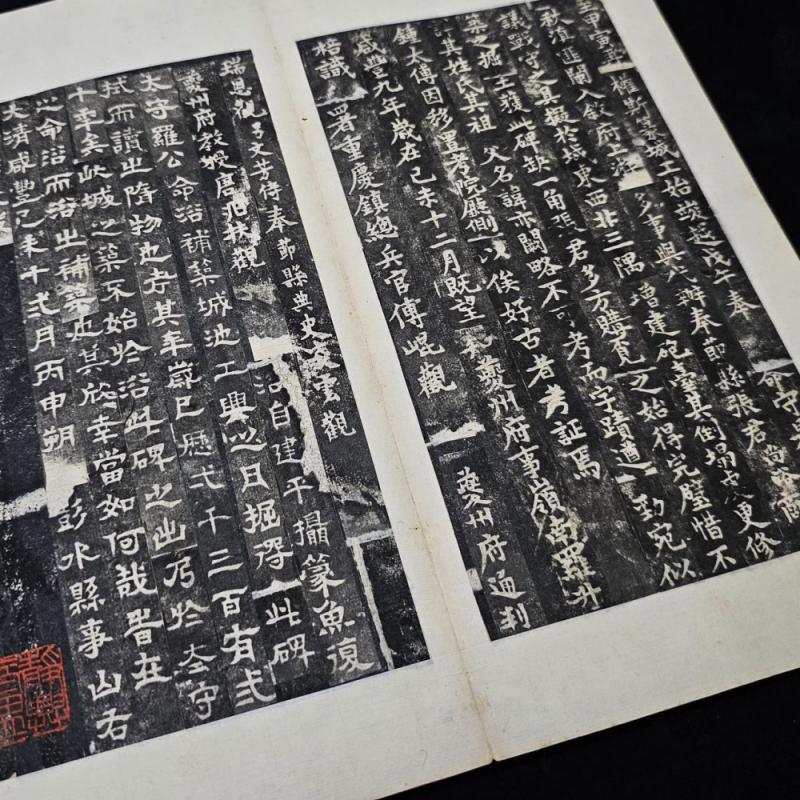 甲寅權斯篆城工始蕆越戊午奉命守
秋滇匪闌入敘府多事與辦奉節縣張君尚
議戰守之具擬於城東西北三隅增建砲臺其倒塌處更修
築之掘土獲此碑缺一角張君多方購覓之始得完璧惜不
其姓氏其祖父名諱亦闕略不可考而字蹟遒勁宛似
鍾太傅因移置考院廳側以俟好古者考証焉
咸豐九年歲在己未十二月既望 知夔州府事嶺南羅升
梧識 署重慶鎮總兵官傅崐觀 夔州府通判
瑞恩觀 子文芳侍 奉節縣典史雲觀
夔州府教授唐林觀 治自建平攝篆魚復
太守羅公命治補築城池工興以月掘得此碑
拭而讀之物也考其年歲已歷弍千三百有弍
十年矣此城之築不始於治此碑之出乃於太守
之命治而治之補築也其欣幸當如何哉昔在
大清咸豐己未十弍月丙申朔 彭水縣事山右